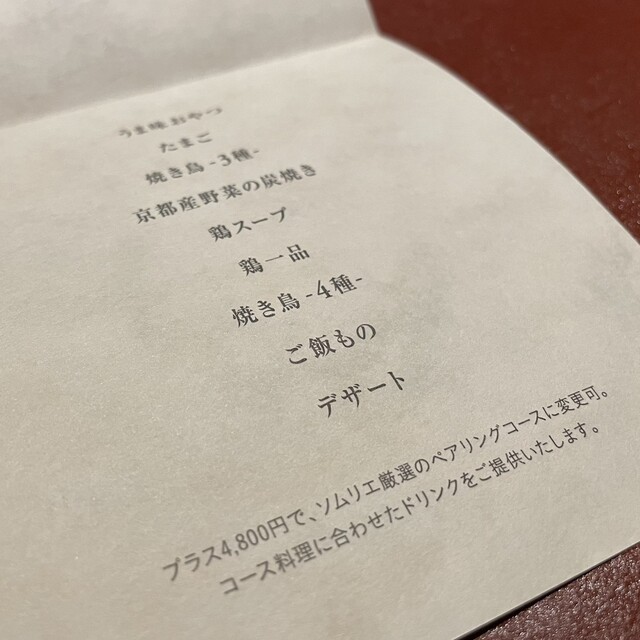 うま味おやつ
たまご
焼き鳥-3種-
京都産野菜の炭焼き
鶏スープ
鶏一品
焼き鳥-4種-
ご飯もの
デザート
プラス4,800円で、ソムリエ厳選のペアリングコースに変更可。
コース料理に合わせたドリンクをご提供いたします。